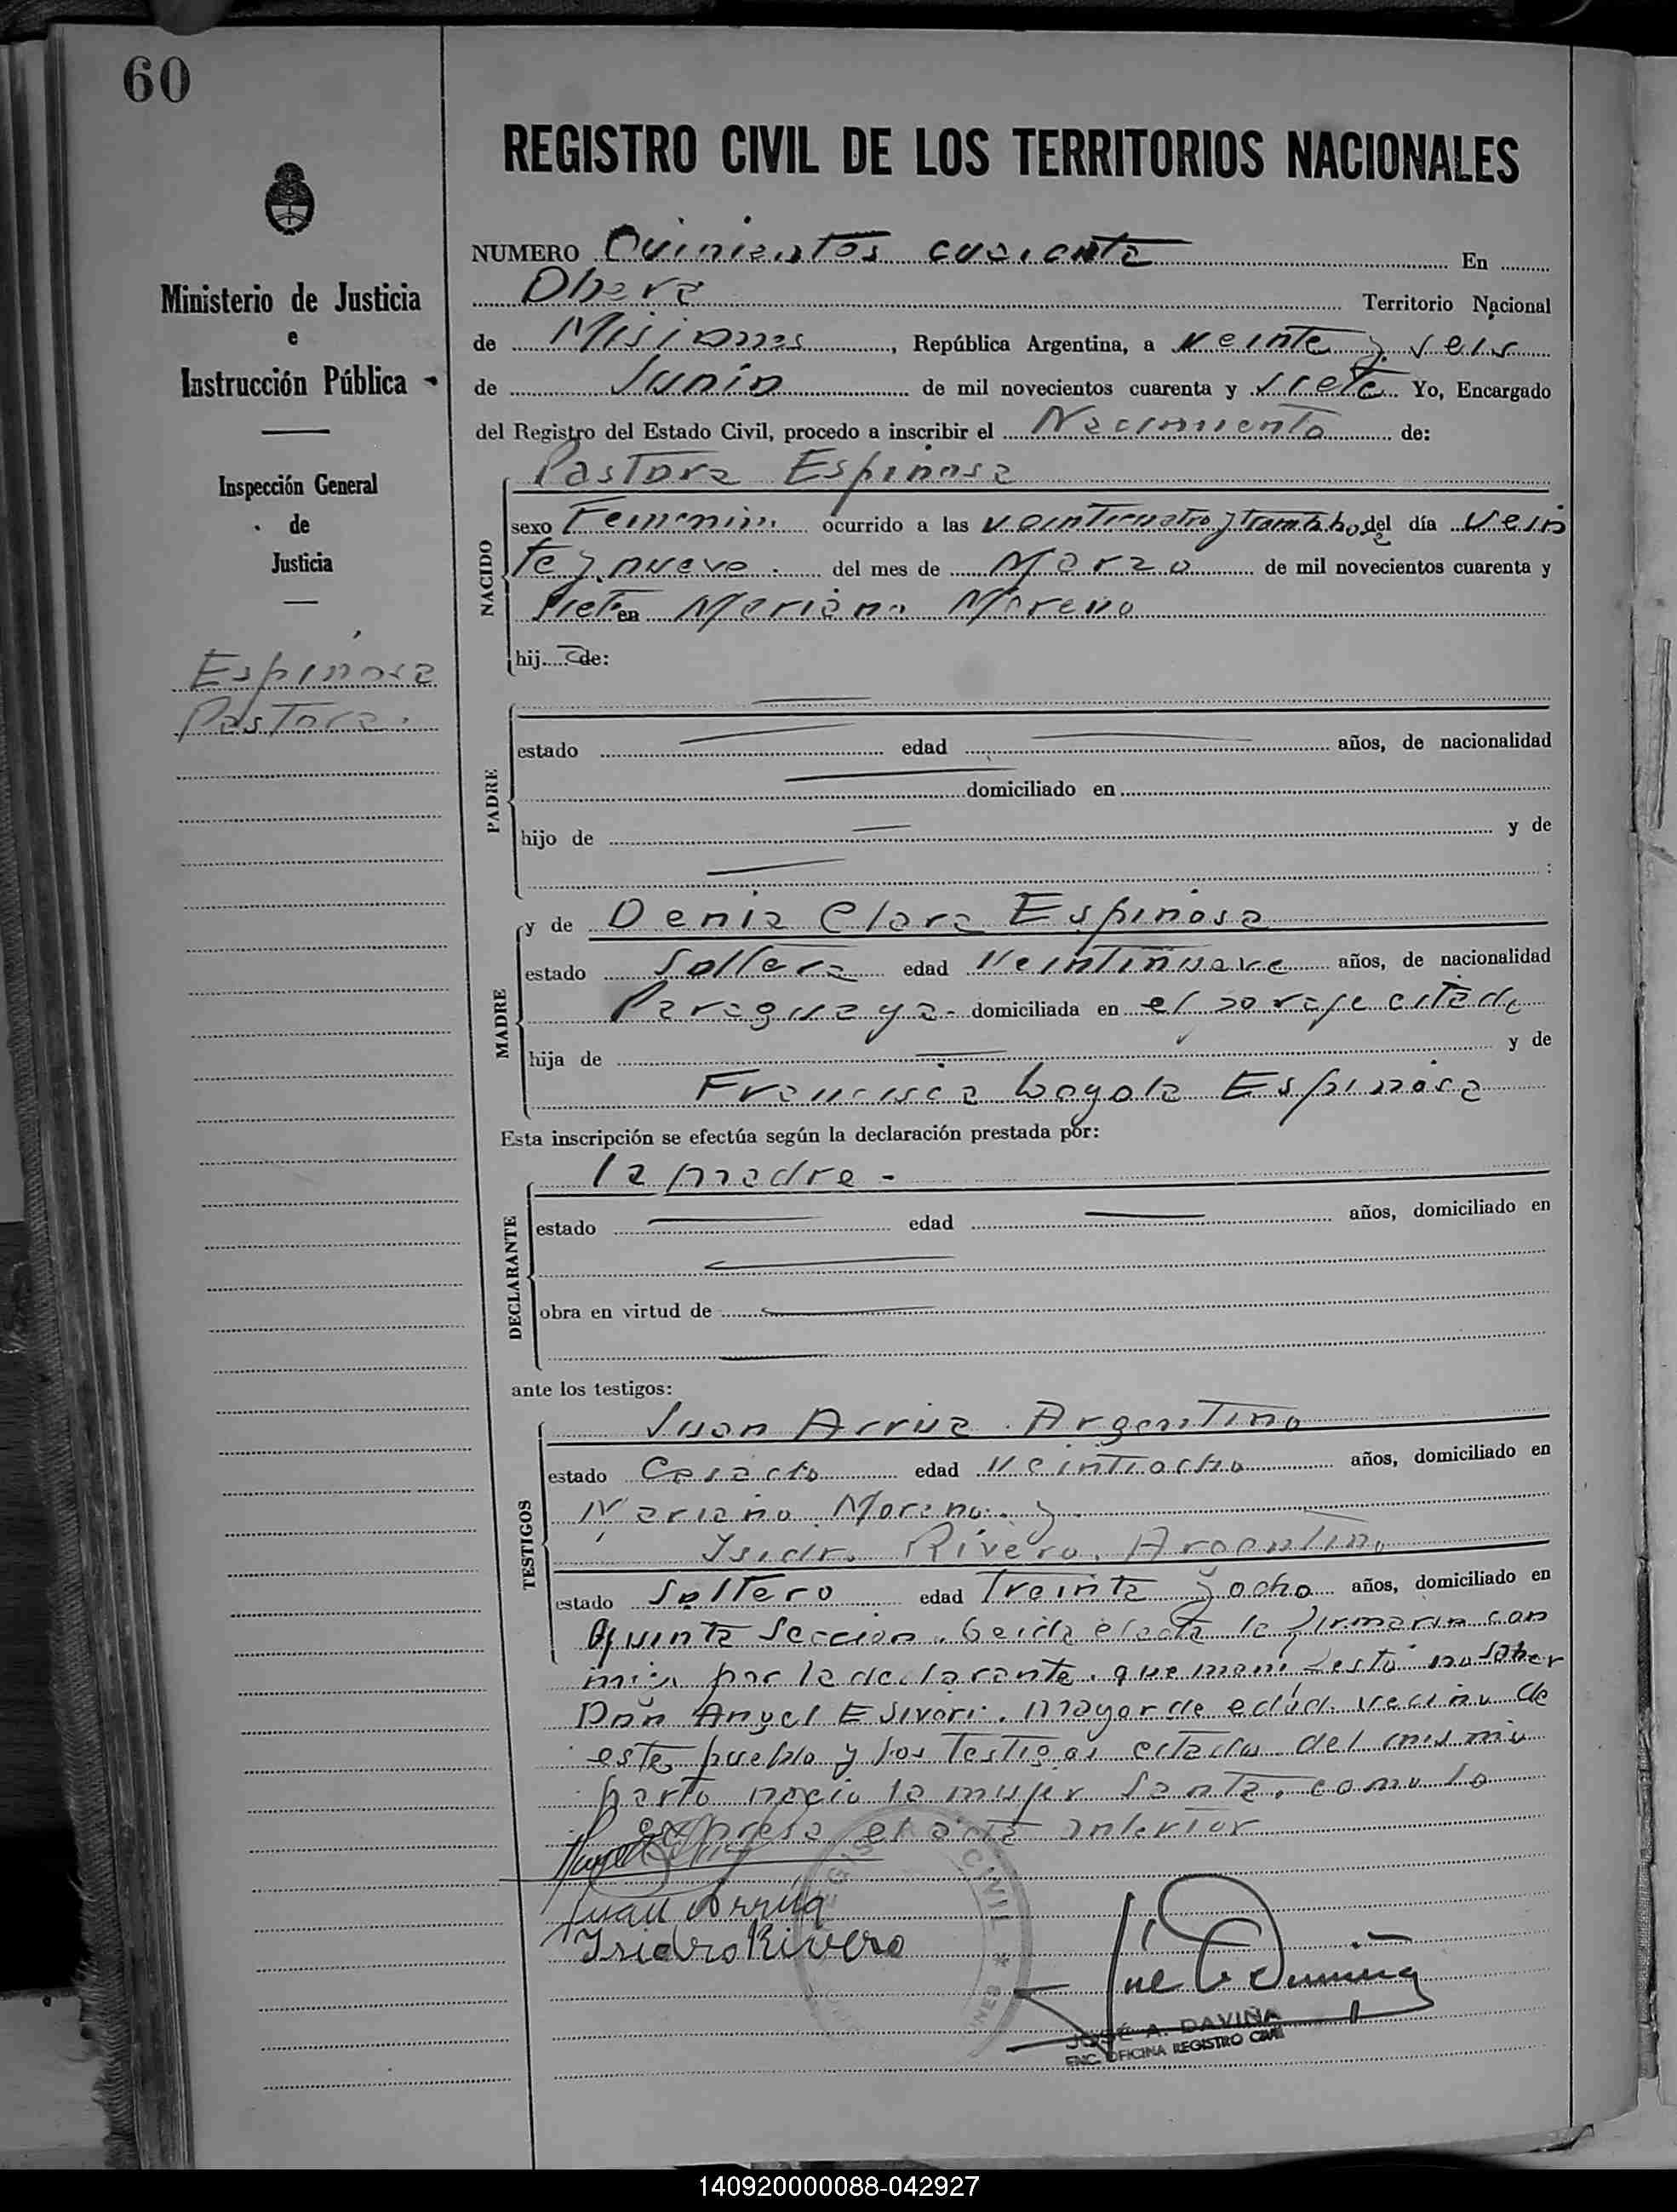 60
REGISTRO CIVIL DE LOS TERRITORIOS NACIONALES
Ministerio de Justicia
e
Instrucción Pública
Inspección General
de
Justicia
Espinosa
Pastora
NUMERO Quinientos cuarenta En
Obera Territorio Nacional
de Misiones, República Argentina, a veinte y seis
de Junio de mil novecientos cuarenta y siete Yo, Encargado
del Registro del Estado Civil, procedo a inscribir el Nacimiento de:
Pastora Espinosa
NACIDO
sexo Femenino ocurrido a las veinticuatro y del día vein
te y nueve del mes de Marzo de mil novecientos cuarenta y
siete en Mariano Moreno
hija de:
PADRE
estado edad años, de nacionalidad
domiciliado en
hijo de y de
:
MADRE
y de Denia Clara Espinosa
estado Soltera edad Veintinueve años, de nacionalidad
Paraguaya - domiciliada en el paraje citado
hija de y de
Francisca Loyola Espinosa
Esta inscripción se efectúa según la declaración prestada por:
la madre -
DECLARANTE
estado edad años, domiciliado en
obra en virtud de
ante los testigos:
TESTIGOS
Juan Arrua . Argentino
estado Casado edad Veintiocho años, domiciliado en
Mariano Moreno y
Isidro Rivero. Argentino
estado Soltero edad Treinta y ocho años, domiciliado en
Quinta Sección. Leida el acta la firmaron con
migo por la declarante que manifestó no saber
Don Angel Esivori. mayor de edad vecino de
este pueblo y los testigos citados del mismo
parto nacio la mujer Santa, como lo
expresa el acta anterior
Juan Arrúa
Isidro Rivero
CIVIL *
JOSÉ A. DAVIÑA
ENC. OFICINA REGISTRO CIVIL
140920000088-042927